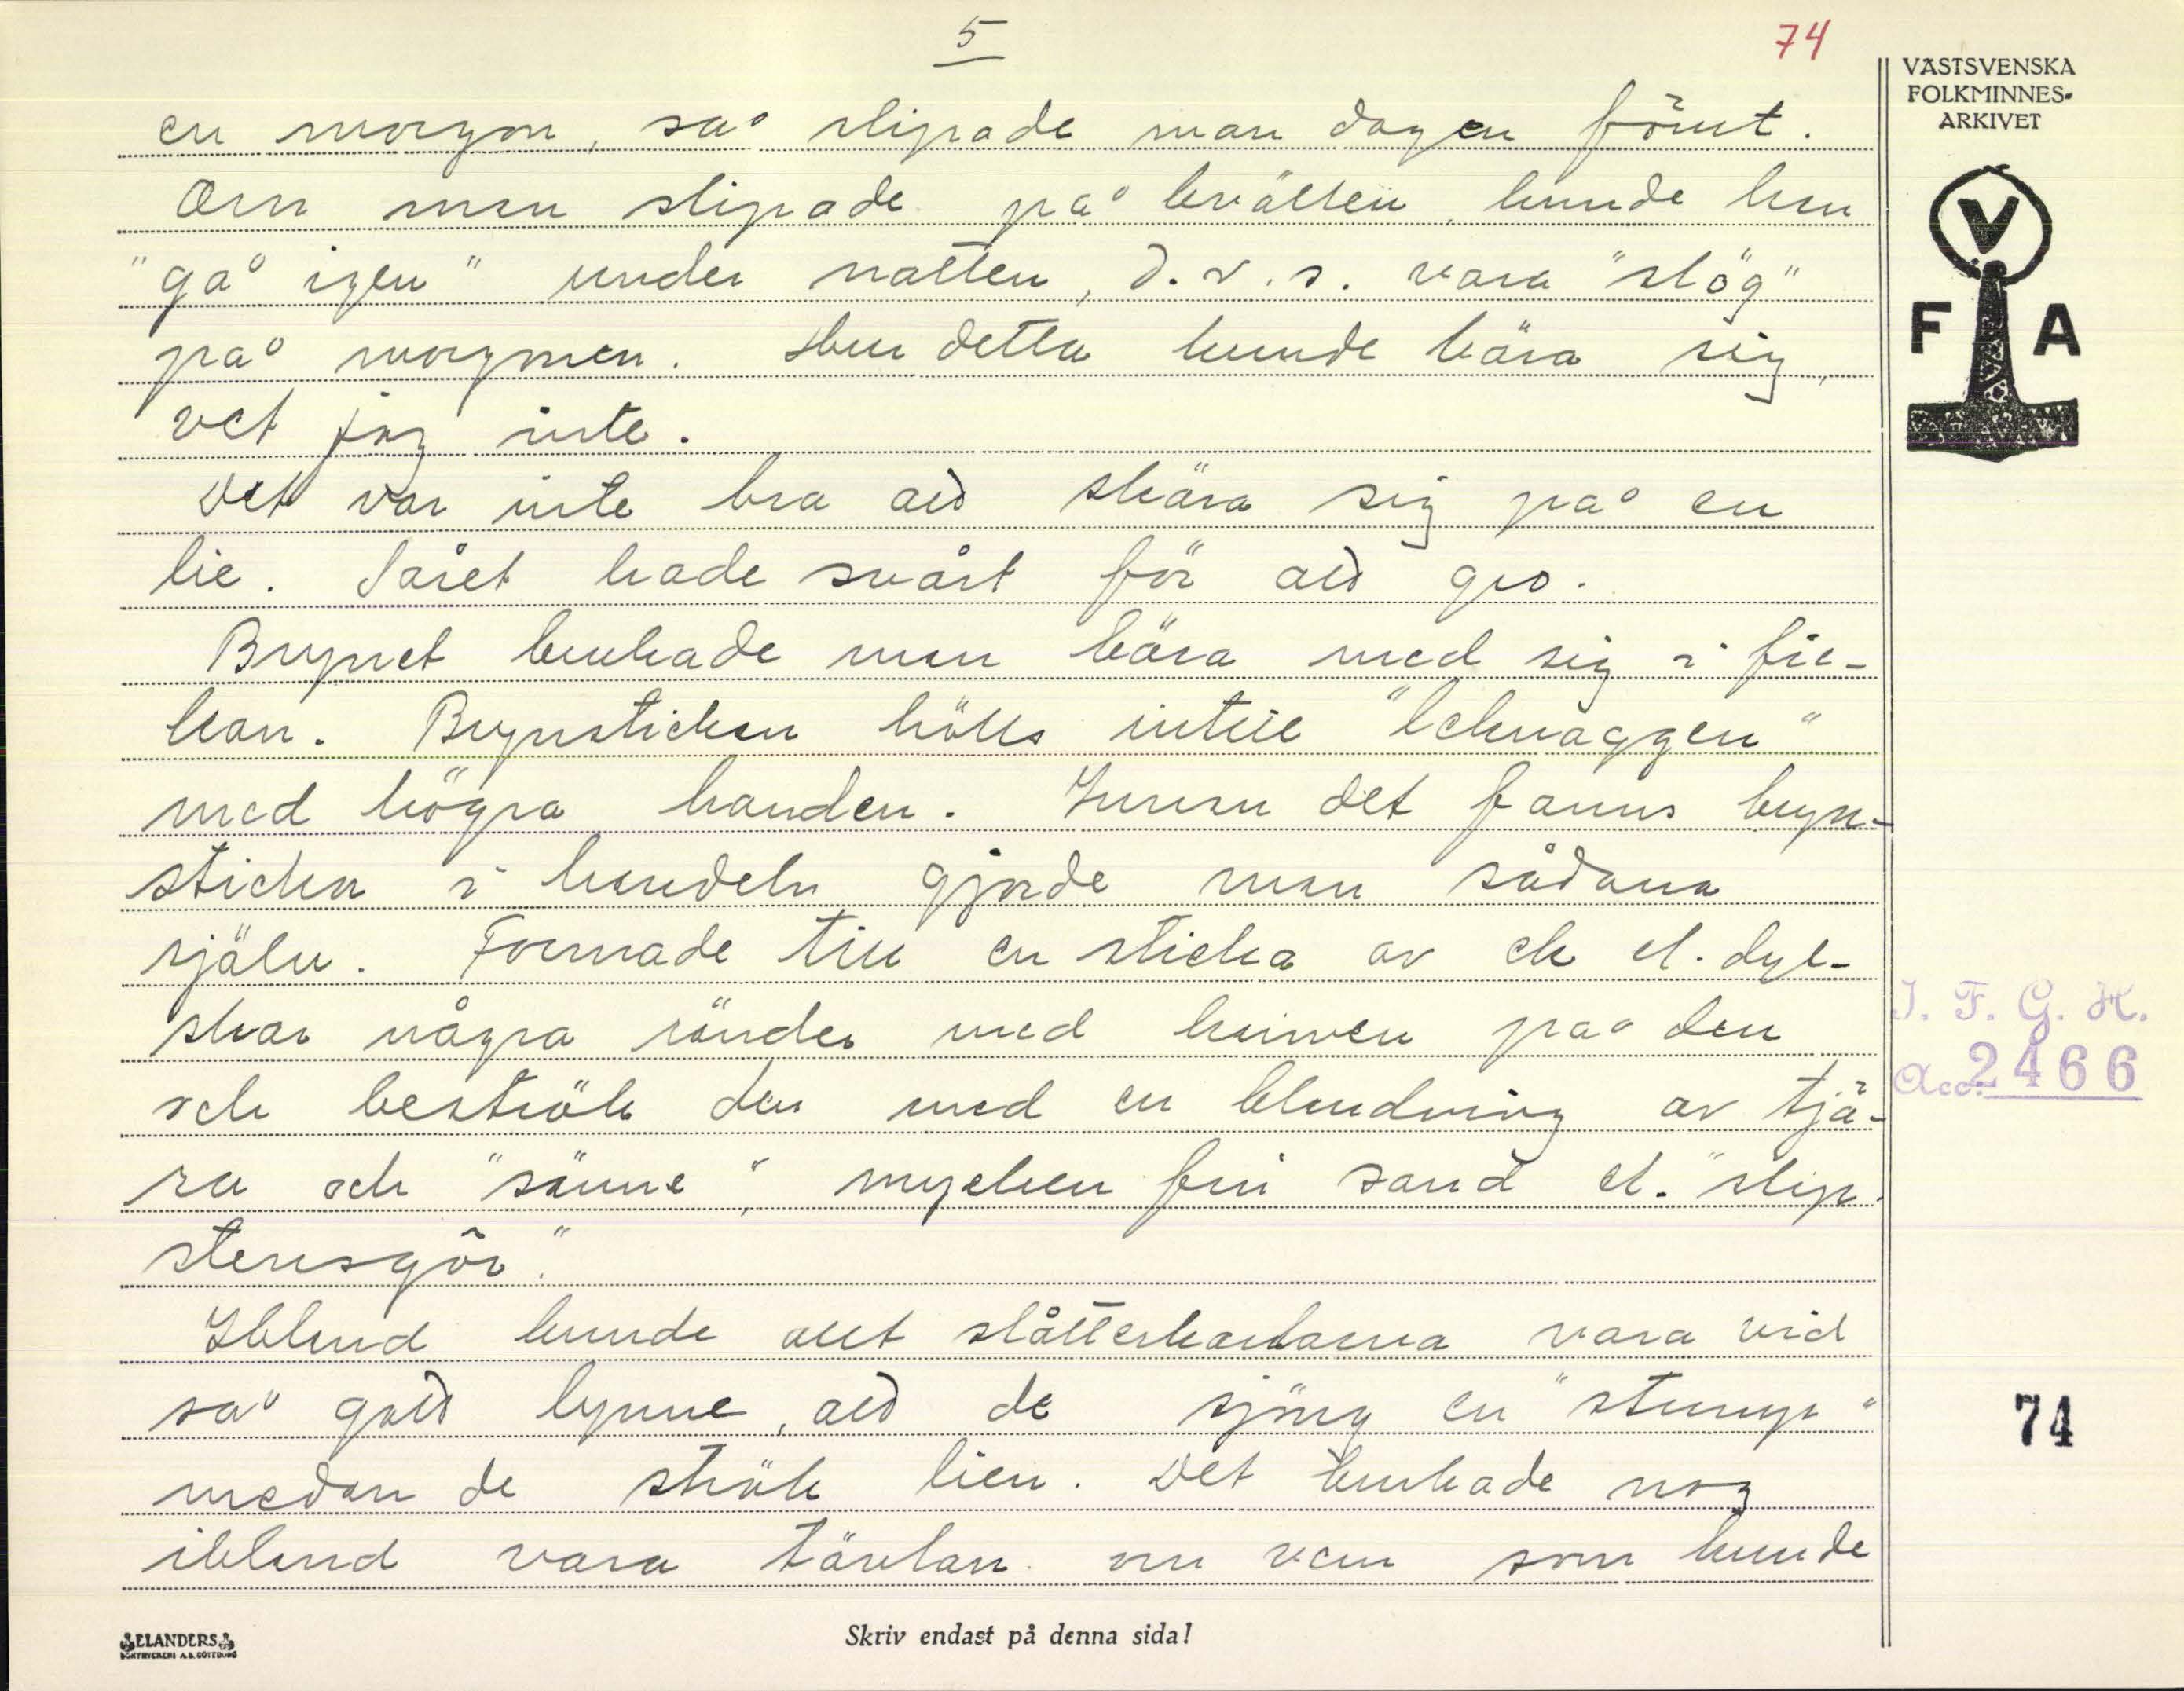 5
74
VÄSTSVENSKA
FOLKMINNES-
ARKIVET
V
F A
en morgon, så slipade man dagen förut.
Om man slipade på kvällen, kunde hon
"gå igen" under natten, d.v.s. vara "slög"
på morgonen. Hur detta kunde bära sig,
vet jag inte.
Det var inte bra att skära sig på en
lie. Såret hade svårt för att gro.
Brynet brukade man bära med sig i fic-
kan. Brynstickan hölls intill "leknaggen"
med högra handen. Innan det fanns bryn-
stickor i handeln gjorde man sådana
själv. Formade till en sticka av ek el. dyl.
skar några ränder med kniven på den
och beströk den med en blandning av tjä-
ra och "sänne", mycken fin sand el. "slip-
stensgôr".
Ibland kunde allt slåtterkarlarna vara vid
så gott lynne, att de sjöng en "stump"
medan de strök lien. Det brukade nog
ibland vara tävlan om vem som kunde
I. F. G. H.
Acc. 2466
74
ELANDERS
BOKTRYCKERI A.B. GÖTEBORG
Skriv endast på denna sida!